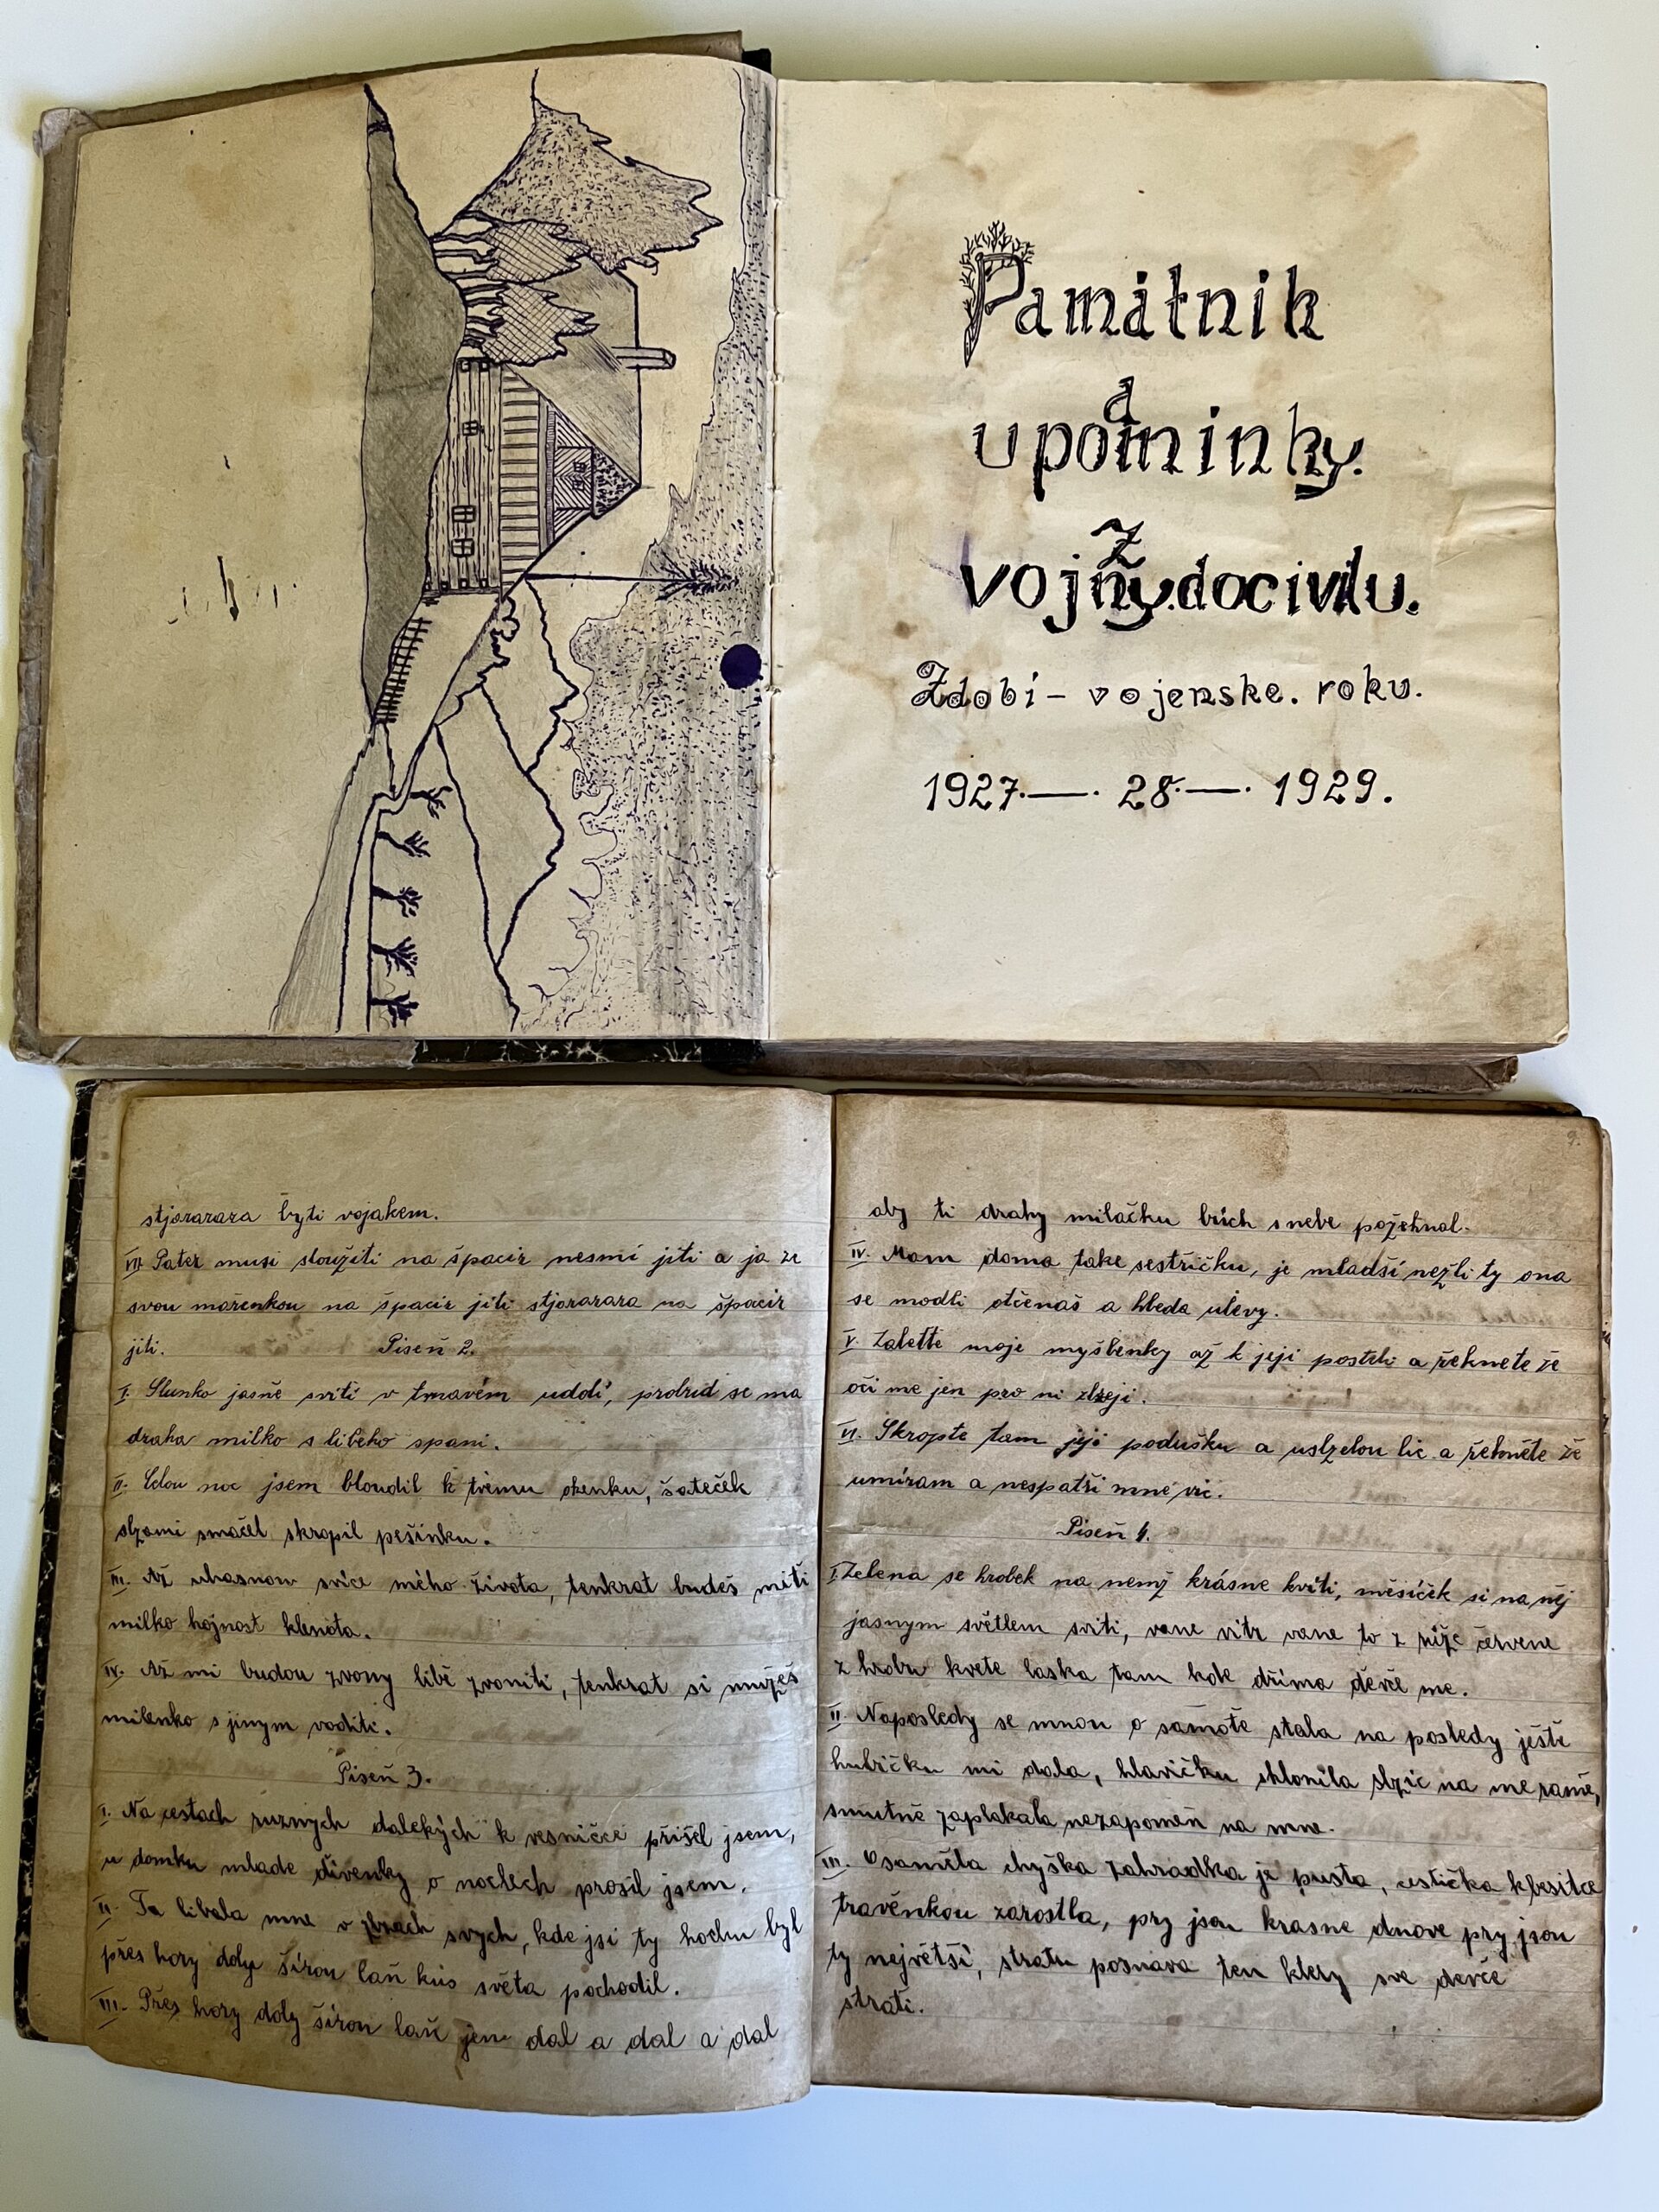 Pamatnik
a
upominky.
Z
vojny.docivilu.
Zdobi - vojenske. roku.
1927.—. 28.—. 1929.
stjorarara byti vojakem.
VII. Pater musi sloužiti na špacir nesmí jíti a ja ze
svou mařenkou na špacir jiti stjorarara na špacir
jiti.
Piseň 2.
I. Slunko jasně sviti v tmavém udolí, probud se ma
draha milko s libeho spani.
II. Celou noc jsem bloudil k tvému okenku, šateček
slzami smačel skropil pešinku.
III. Až uhasnou svíce mého života, tenkrat budeš míti
milko hojnost klenota.
IV. Až mi budou zvony libě zvoniti, tenkrat si mužeš
milenko s jinym voditi.
Piseň 3.
I. Na cestach ruznych dalekých k vesničce přišel jsem,
u domku mlade divenky o nocleh prosil jsem.
II. Ta libala mne v slzach svych, kde jsi ty hochu byl
přes hory doly širou laň kus světa pochodil.
III. Přes hory doly širou laň jen dal a dal a dal
9.
aby ti drahy milačku bůch s nebe požehnal.
IV. Mam doma take sestřičku, je mladší nežli ty ona
se modli otčenaš a hleda ulevy.
V. Zalette moje myšlenky až k jeji posteli a řeknete že
oči me jen pro ni slzeji.
VI. Skropte tam její podušku a uslzelou lic a řekněte že
umíram a nespatři mne vic.
Piseň 4.
I. Zelena se hrobek na nemž krásne kviti, měsíček si na něj
jasnym světlem sviti, vane vitr vane to z růže červene
z hrobu kvete laska tam kde dříma děvče me.
II. Naposledy se mnou o samotě stala na posledy ještě
hubičku mi dala, hlavičku sklonila slzic na me rame,
smutně zaplakala nezapomeň na mne.
III. Osaměla chyška zahradka je pusta, cestička k besitce
travěnkou zarostla, pry jsou krasne dnove pry jsou
ty největši, stratu poznava ten ktery sve devče
strati.